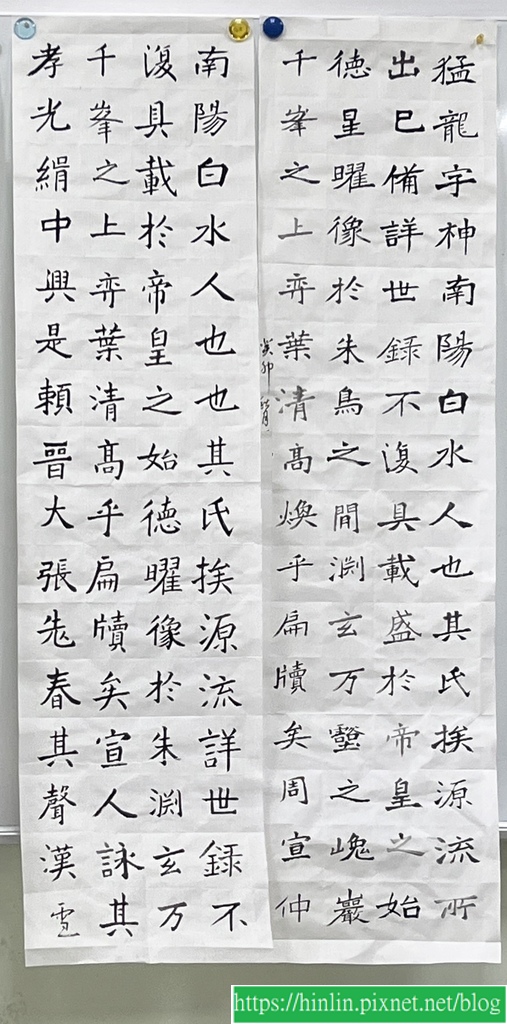 猛龍字神南陽白水人也其氏挨源流所
出巳備詳世錄不復具載盛於帝皇之始
德星曜像於朱鳥之間渕玄万壑之嵬巖
千峯之上弈葉清高煥乎扁牘矣周宣仲
癸卯秋月
南陽白水人也也其氏挨源流詳世錄不
復具載於帝皇之始德曜像於朱渕玄万
千峯之上弈葉清高乎扁牘矣宣人詠其
孝光緝中興是賴晉大張老春其聲漢
https://hinlin.pixnet.net/blog